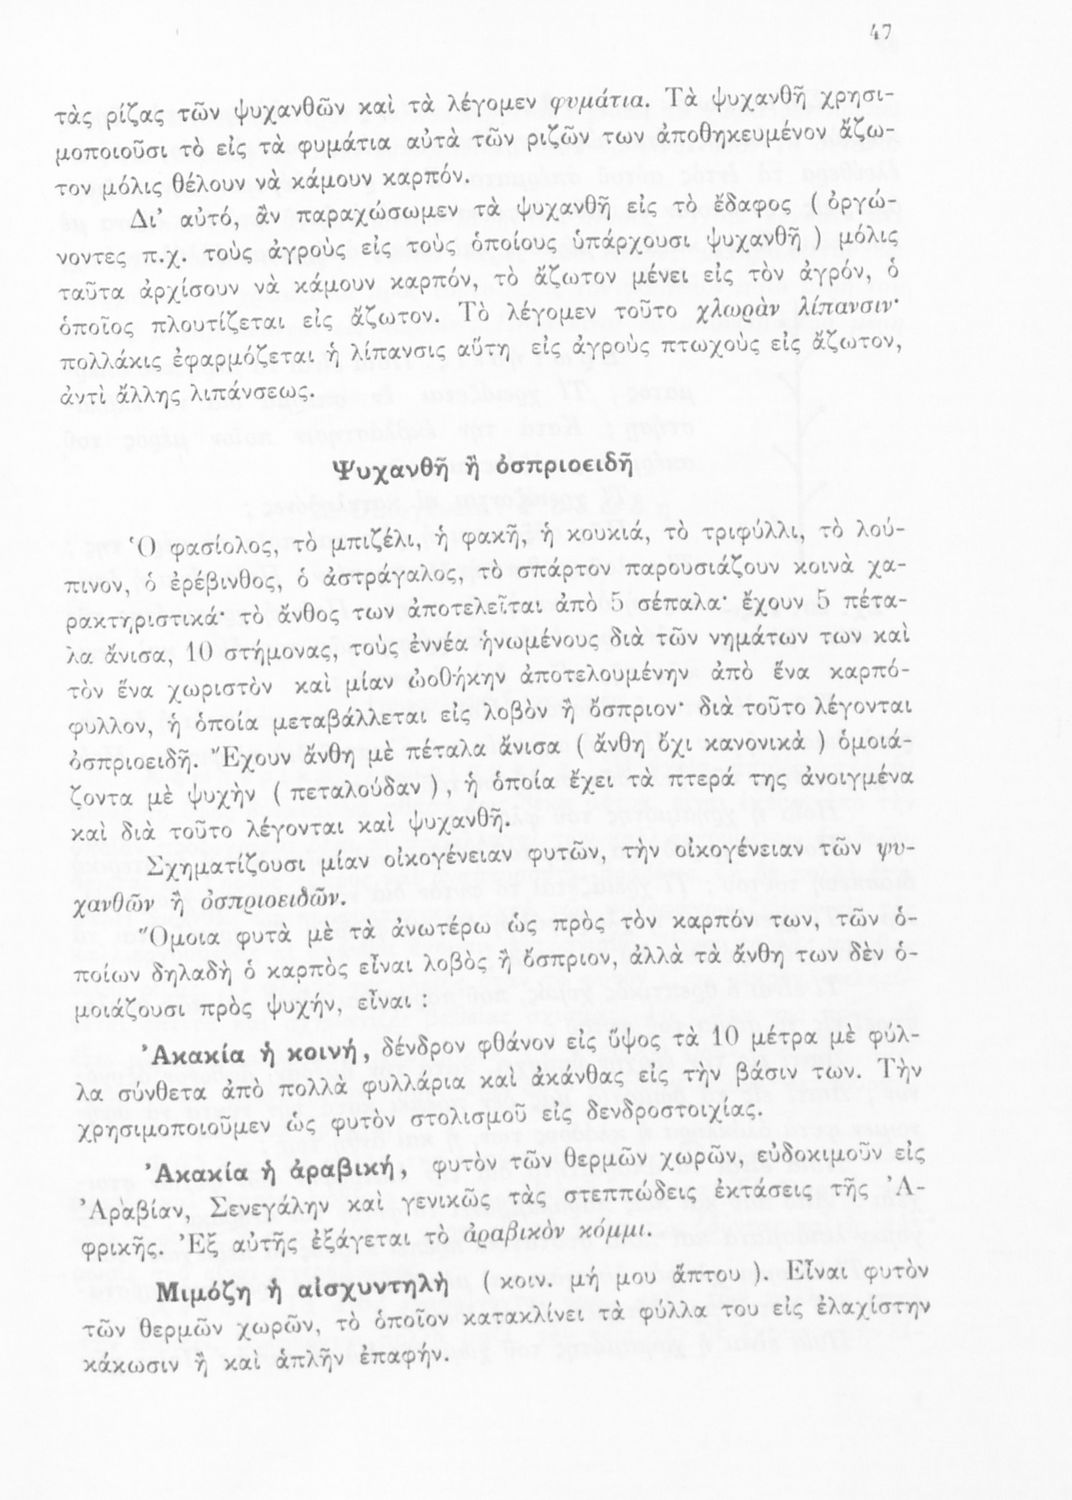 47
τὰς ρίζας τῶν ψυχανθῶν καὶ τὰ λέγομεν φυμάτια. Τὰ ψυχανθῆ χρησι-
μοποιοῦσι τὸ εἰς τὰ φυμάτια αὐτὰ τῶν ριζῶν των ἀποθηκευμένον ἄζω-
τον μόλις θέλουν νὰ κάμουν καρπόν.
Δι' αὐτό, ἂν παραχώσωμεν τὰ ψυχανθῆ εἰς τὸ ἔδαφος ( ὀργώ-
νοντες π.χ. τοὺς ἀγροὺς εἰς τοὺς ὁποίους ὑπάρχουσι ψυχανθῆ ) μόλις
ταῦτα ἀρχίσουν νὰ κάμουν καρπόν, τὸ ἄζωτον μένει εἰς τὸν ἀγρόν, ὁ
ὁποῖος πλουτίζεται εἰς ἄζωτον. Τὸ λέγομεν τοῦτο χλωρὰν λίπανσιν·
πολλάκις ἐφαρμόζεται ἡ λίπανσις αὕτη εἰς ἀγροὺς πτωχοὺς εἰς ἄζωτον,
ἀντὶ ἄλλης λιπάνσεως.
Ψυχανθῆ ἢ ὀσπριοειδῆ
Ὁ φασίολος, τὸ μπιζέλι, ἡ φακῆ, ἡ κουκιά, τὸ τριφύλλι, τὸ λού-
πινον, ὁ ἐρέβινθος, ὁ ἀστράγαλος, τὸ σπάρτον παρουσιάζουν κοινὰ χα-
ρακτηριστικά· τὸ ἄνθος των ἀποτελεῖται ἀπὸ 5 σέπαλα· ἔχουν 5 πέτα-
λα ἄνισα, 10 στήμονας, τοὺς ἐννέα ἡνωμένους διὰ τῶν νημάτων των καὶ
τὸν ἕνα χωριστὸν καὶ μίαν ὠοθήκην ἀποτελουμένην ἀπὸ ἕνα καρπό-
φυλλον, ἡ ὁποία μεταβάλλεται εἰς λοβὸν ἢ ὄσπριον· διὰ τοῦτο λέγονται
ὀσπριοειδῆ. Ἔχουν ἄνθη μὲ πέταλα ἄνισα ( ἄνθη ὄχι κανονικὰ ) ὁμοιά-
ζοντα μὲ ψυχὴν ( πεταλούδαν ), ἡ ὁποία ἔχει τὰ πτερά της ἀνοιγμένα
καὶ διὰ τοῦτο λέγονται καὶ ψυχανθῆ.
Σχηματίζουσι μίαν οἰκογένειαν φυτῶν, τὴν οἰκογένειαν τῶν ψυ-
χανθῶν ἢ ὀσπριοειδῶν.
Ὅμοια φυτὰ μὲ τὰ ἀνωτέρω ὡς πρὸς τὸν καρπόν των, τῶν ὁ-
ποίων δηλαδὴ ὁ καρπὸς εἶναι λοβὸς ἢ ὄσπριον, ἀλλὰ τὰ ἄνθη των δὲν ὁ-
μοιάζουσι πρὸς ψυχήν, εἶναι :
Ἀκακία ἡ κοινή, δένδρον φθάνον εἰς ὕψος τὰ 10 μέτρα μὲ φύλ-
λα σύνθετα ἀπὸ πολλὰ φυλλάρια καὶ ἀκάνθας εἰς τὴν βάσιν των. Τὴν
χρησιμοποιοῦμεν ὡς φυτὸν στολισμοῦ εἰς δενδροστοιχίας.
Ἀκακία ἡ ἀραβική, φυτὸν τῶν θερμῶν χωρῶν, εὐδοκιμοῦν εἰς
Ἀραβίαν, Σενεγάλην καὶ γενικῶς τὰς στεππώδεις ἐκτάσεις τῆς Ἀ-
φρικῆς. Ἐξ αὐτῆς ἐξάγεται τὸ ἀραβικὸν κόμμι.
Μιμόζη ἡ αἰσχυντηλὴ ( κοιν. μή μου ἅπτου ). Εἶναι φυτὸν
τῶν θερμῶν χωρῶν, τὸ ὁποῖον κατακλίνει τὰ φύλλα του εἰς ἐλαχίστην
κάκωσιν ἢ καὶ ἁπλῆν ἐπαφήν.